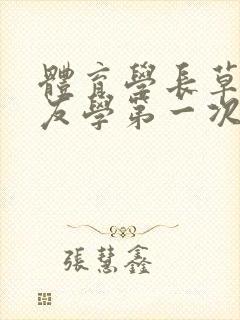 體育學長草
友學第一次
張慧鑫